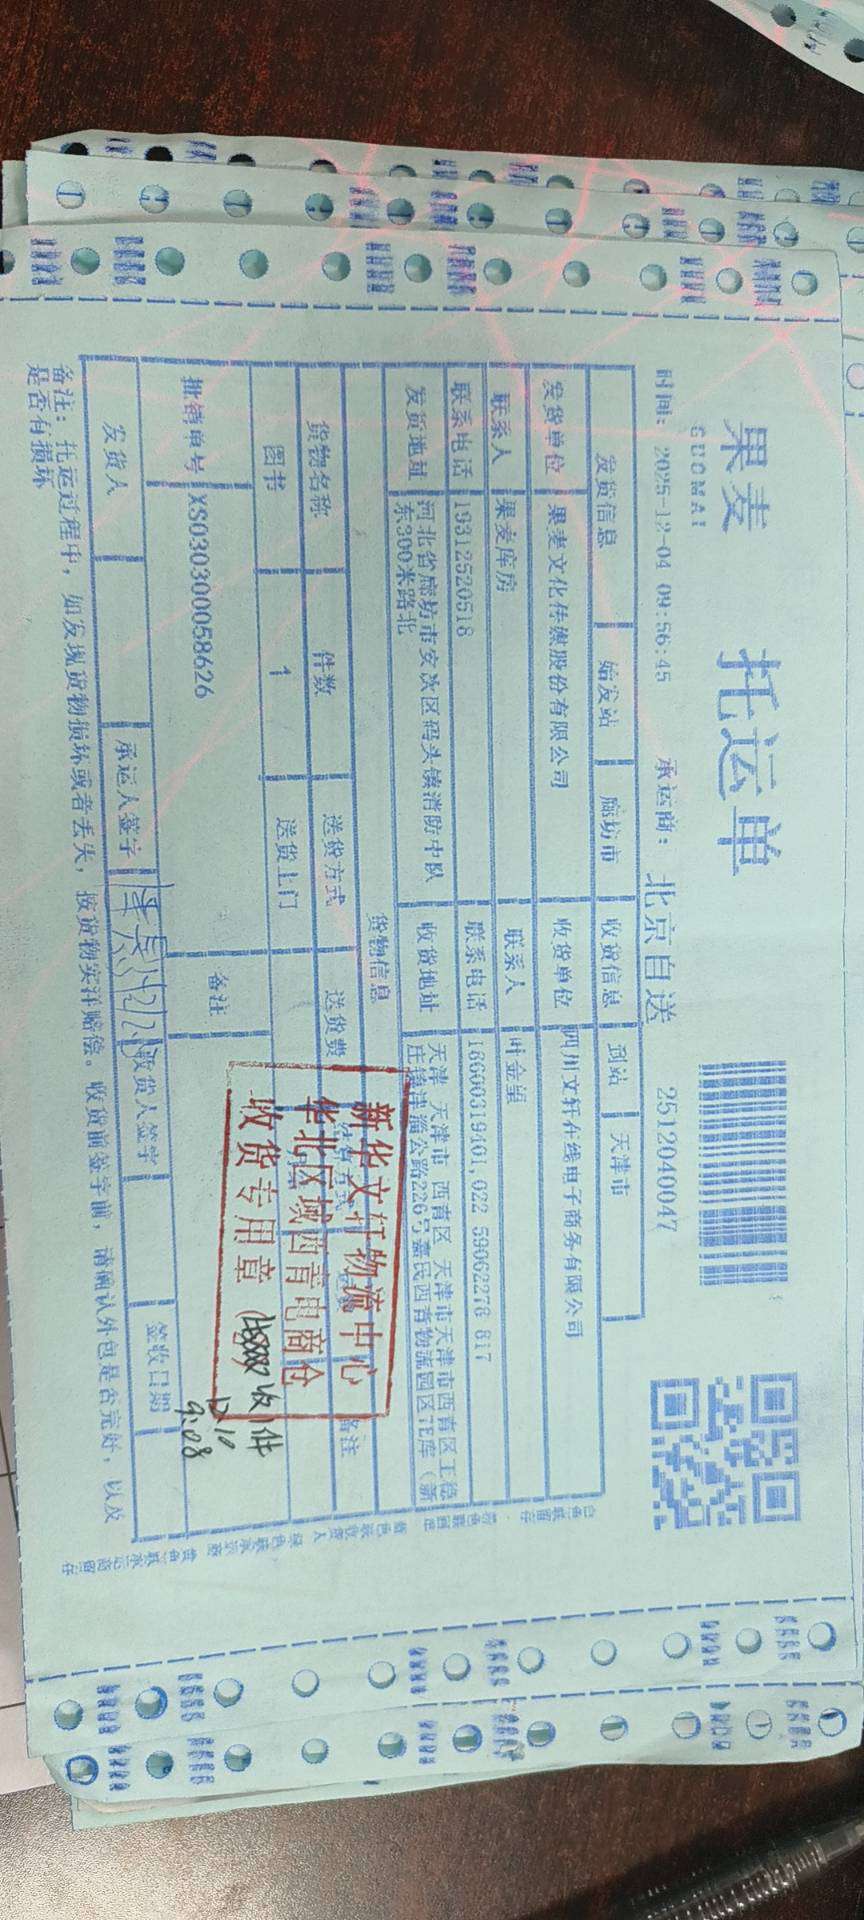 果麦
GUOMAI
托运单
2512040047
时间：2025-12-04 09:56:45 承运商：北京自送
发货信息 始发站 廊坊市 收货信息 到站 天津市
发货单位 果麦文化传媒股份有限公司 收货单位 四川文轩在线电子商务有限公司
联系人 果麦库房 联系人 叶金望
联系电话 19312520518 联系电话 18600319401,022 59062278 817
发货地址 河北省廊坊市安次区码头镇消防中队
东300米路北
收货地址 天津 天津市 西青区 天津市天津市西青区王稳
庄镇津淄公路226号嘉民西青物流园区7E库（新
货物信息
货物名称 件数 送货方式 送货费 计算方式 备注
图书 1 送货上门
批销单号 XS030300058626 备注
新华文轩物流中心
华北区域西青电商仓
收货专用章
收1件
12.10
9:08
发货人 承运人签字 收货人签字 签收日期
备注：托运过程中，如发现货物损坏或者丢失，按货物实洋赔偿。收货前签字前，请确认外包是否完好，以及
是否有损坏